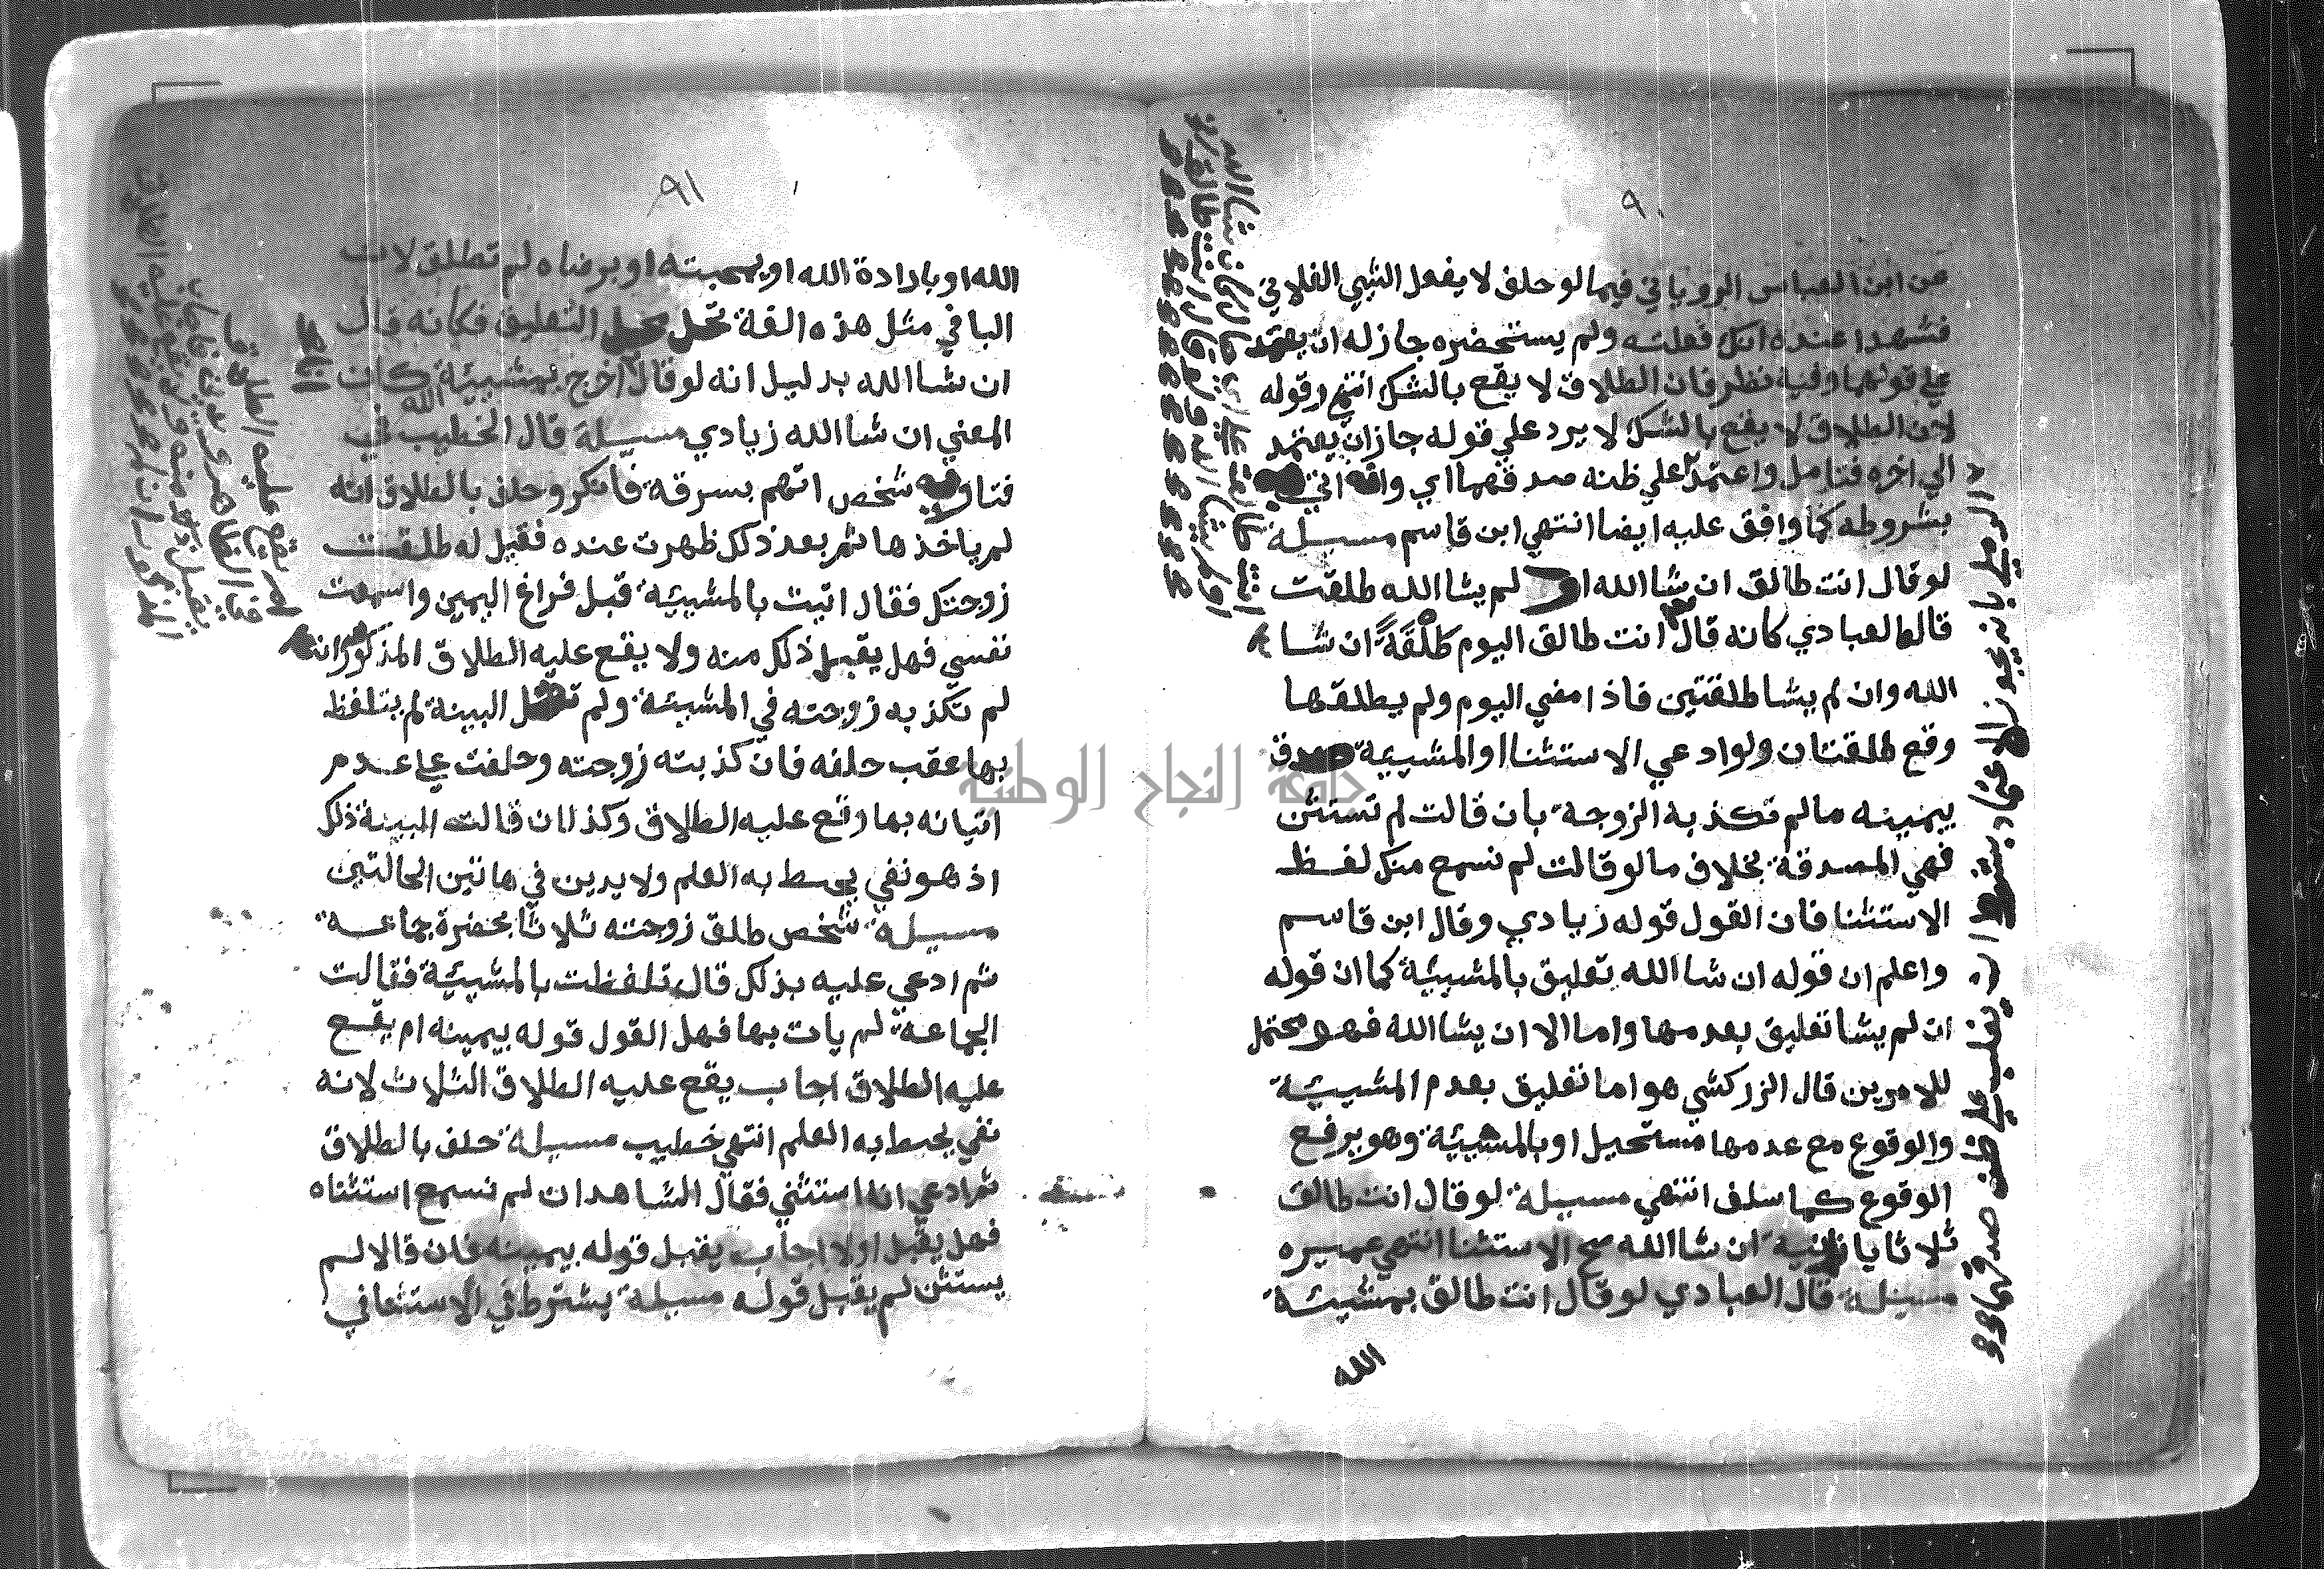 ٩٠
عن ابن العباس الروياني فيما لو حلف لا يفعل الشي الفلاني
فشهدا عنده انك فعلته ولم يستحضره جاز له ان يعتمد
علي قولهما وفيه نظر فان الطلاق لا يقع بالشك انتهي وقوله
لان الطلاق لا يقع بالشك لا يرد علي قوله جاز ان يعتمد
الي اخره فتامل واعتمد علي ظنه صدقهما اي وافق
بشروطه كما وافق عليه ايضا انتهي ابن قاسم مسيلة
لو قال انت طالق ان شا الله او لم يشا الله طلقت
قال العبادي كانه قال انت طالق اليوم طلقةً ان شا
الله وان لم يشا طلقتين فاذا مضي اليوم ولم يطلقها
وقع طلقتان ولو ادعي الاستثنا او المشيية صدق
بيمينه ما لم تكذبه الزوجة بان قالت لم تستثن
فهي المصدقة بخلاف ما لو قالت لم نسمع منك لفظ
الاستثنا فان القول قوله زيادي وقال ابن قاسم
واعلم ان قوله ان شا الله تعليق بالمشيية كما ان قوله
ان لم يشا تعليق بعدمها واما الا ان يشا الله فهو محتمل
للامرين قال الزركشي هو اما تعليق بعدم المشيية
والوقوع مع عدمها مستحيل او بالمشيية وهو يرفع
الوقوع كما سلف انتهي مسيلة لو قال انت طالق
ثلاثا يا زانية ان شا الله صح الاستثنا انتهي عميره
مسيلة قال العبادي لو قال انت طالق بمشيئة
الله
الرملي بانه يجوز الاعتماد بشرط ان يغلب علي ظنه صدقهما
٩١
الله او بارادة الله او بمحبته او برضاه لم تطلق لان
البا في مثل هذه القة تحمل التعليق فكانه قال
ان شا الله بدليل انه لو قال اخرج بمشيية الله كان
المعني ان شا الله زيادي مسيلة قال الخطيب في
فتاويه شخص اتهم بسرقة فانكر وحلف بالطلاق انه
لم ياخذها ثم بعد ذلك ظهرت عنده فقيل له طلقت
زوجتك فقال اتيت بالمشيية قبل فراغ اليمين واسمعت
نفسي فهل يقبل ذلك منه ولا يقع عليه الطلاق المذكور
لم تكذبه زوجته في المشيئة ولم تقل البينة لم يتلفظ
بها عقب حلفه فان كذبته زوجته وحلفت علي عدم
اتيانه بها وقع عليه الطلاق وكذا ان قالت البينة ذلك
اذ هو نفي يحيط به العلم ولا يدين في هاتين الحالتين
مسيلة شخص طلق زوجته ثلاثا بحضرة جماعة
ثم ادعي عليه بذلك قال تلفظت بالمشيئة فقالت
الجماعة لم يات بها فهل القول قوله بيمينه ام يقع
عليه الطلاق اجاب يقع عليه الطلاق الثلاث لانه
نفي يحيط به العلم انتهي خطيب مسيلة حلف بالطلاق
ثم ادعي انه استثني فقال الشاهدان لم نسمع استثناه
فهل يقبل اولا اجاب يقبل قوله بيمينه فان قالا لم
يستثن لم يقبل قوله مسيلة يشترط في الاستثنا في
جامعة النجاح الوطنية